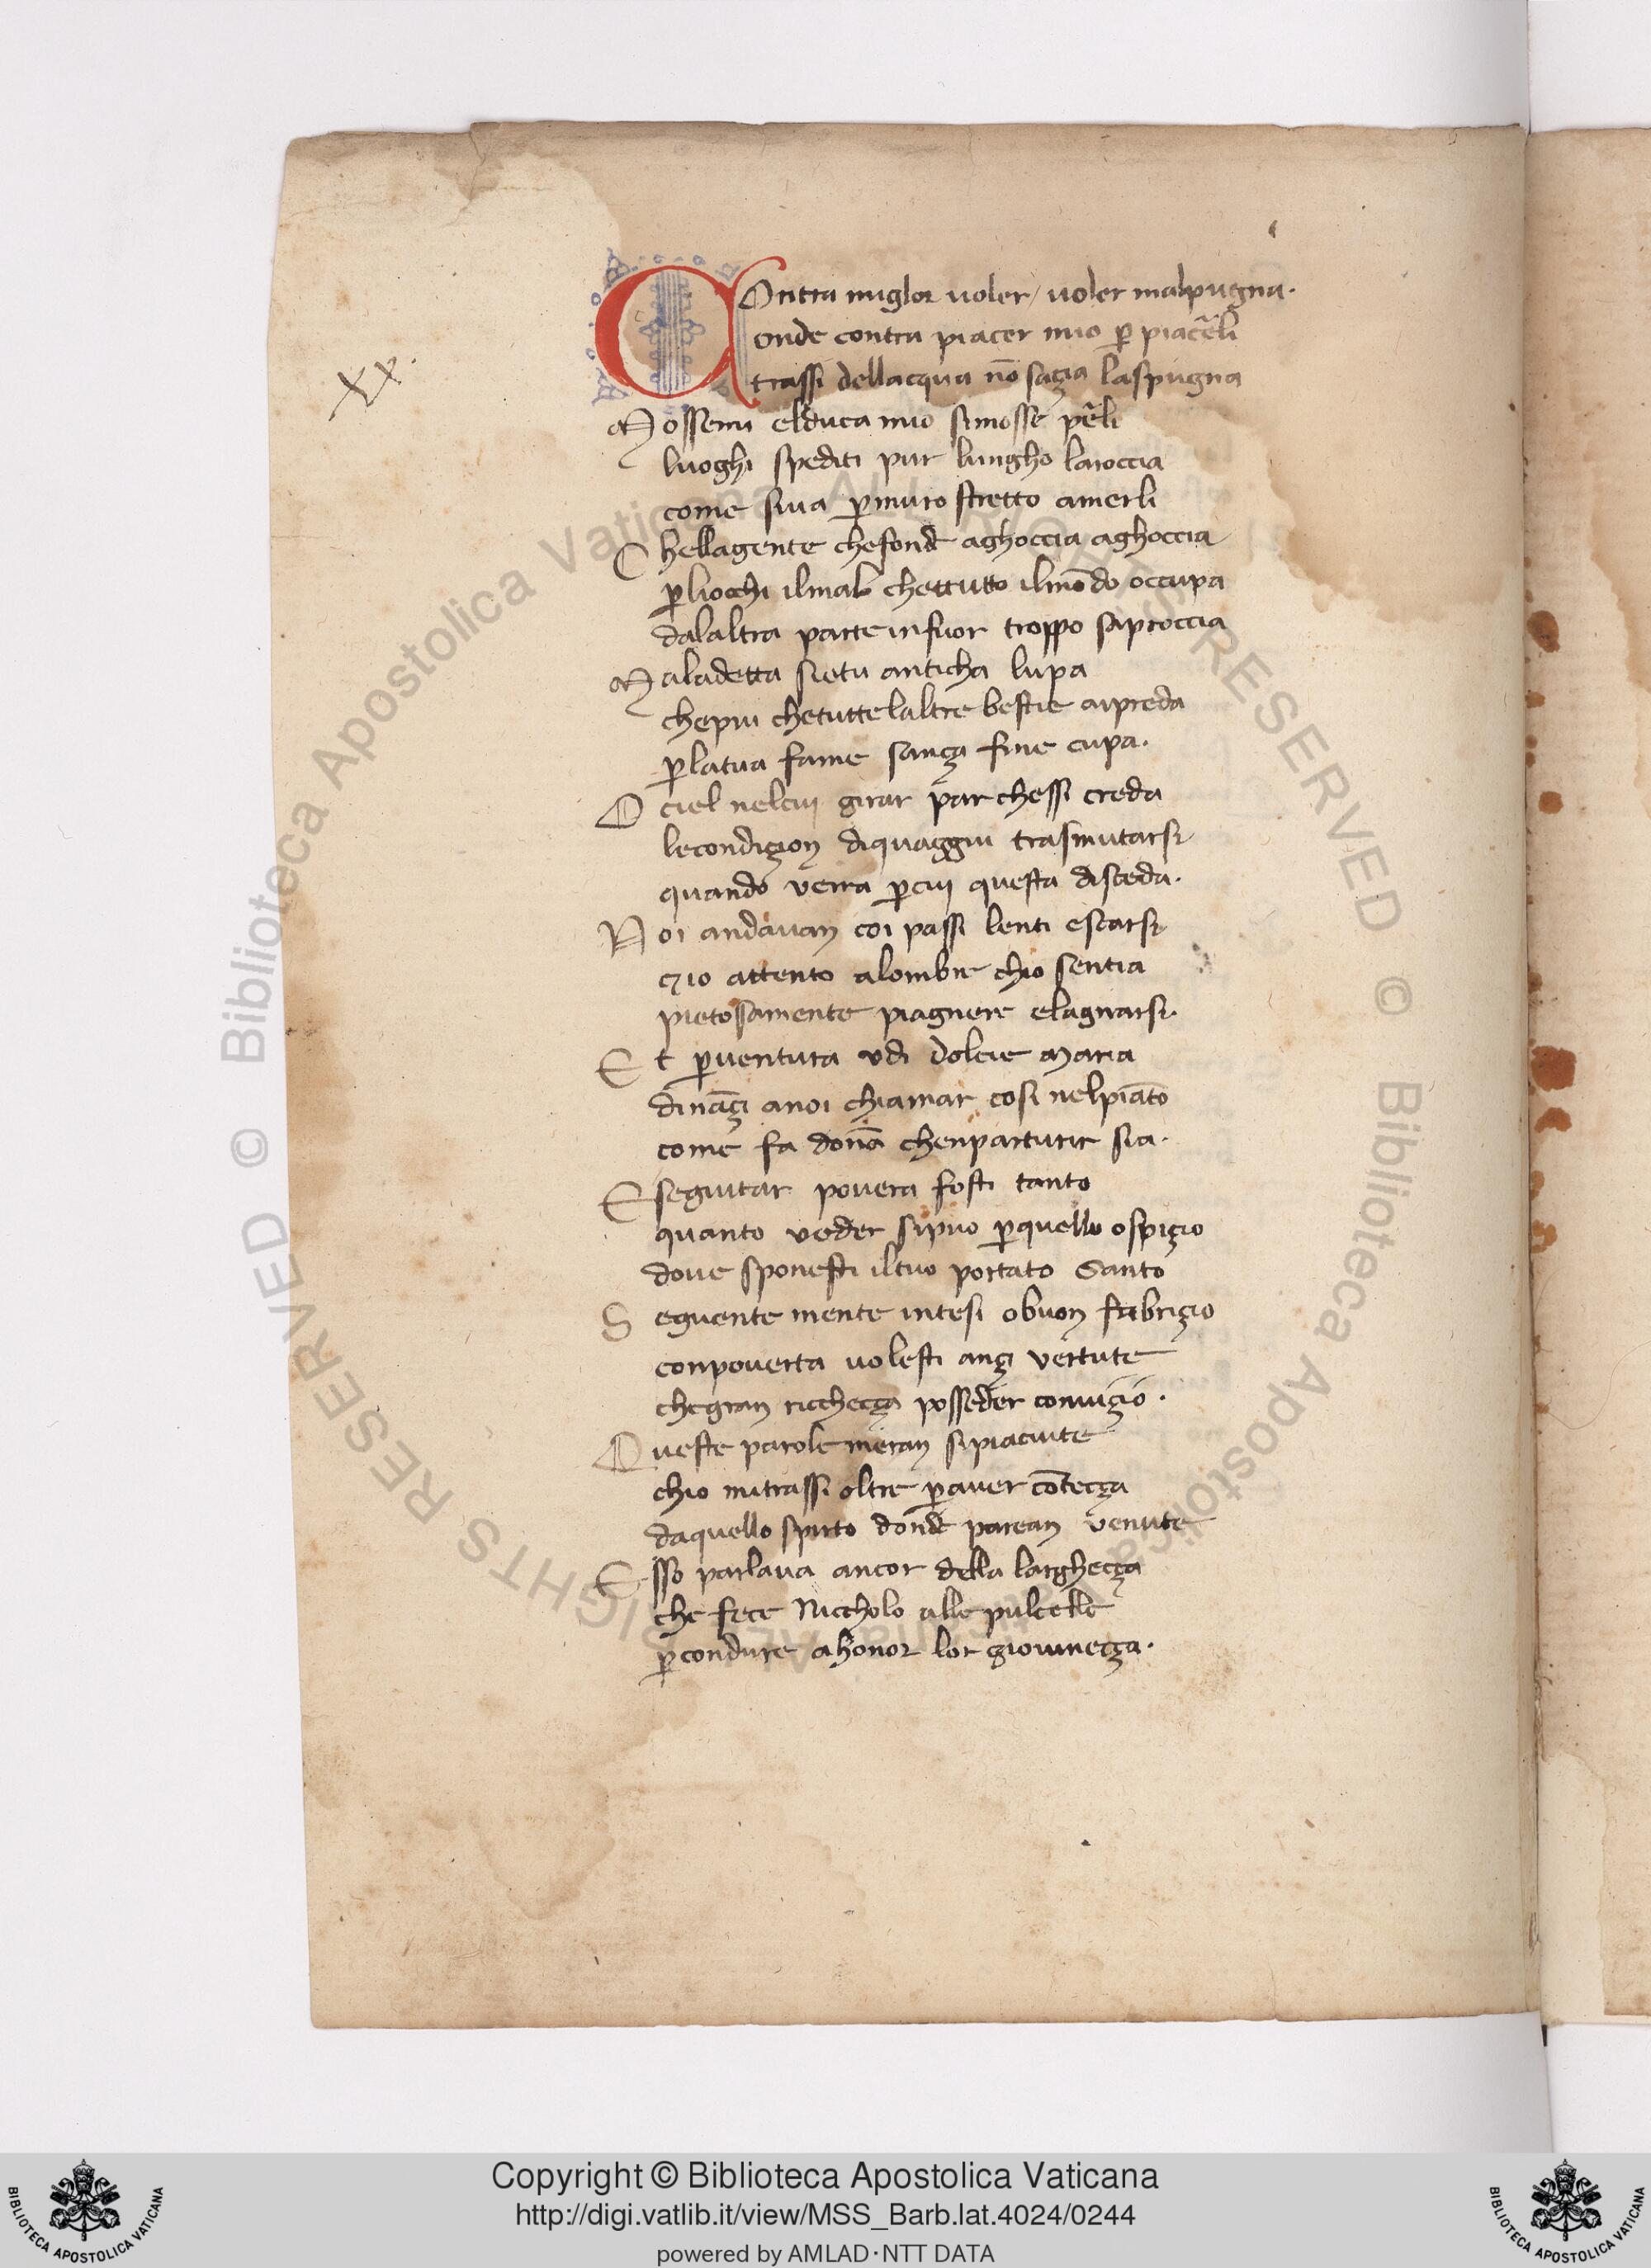 xx.
COntra miglor uoler / uoler mal pugna.
onde contra piacer mio ꝑ piac̃eli
trassi dellacqua nõ sazia laspugna
Mossemi elduca mio simosse pẽli
luoghi spediti pur lungho laroccia
come siua ꝑmuro stretto amerli
Chellagente chefonde aghoccia aghoccia
ꝑliocchi ilmale chettutto ilmõdo occupa
dalaltra parte infuor troppo saproccia
Maladetta sietu anticha lupa
chepiu chetuttelaltre bestie aipreda
ꝑlatua fame sança fine cupa.
O ciel nelcui girar par chessi creda
lecondizion diquaggiu trasmutarsi
quando verra ꝑcui questa disceda.
Noi andavan coi passi lenti escarsi
ꝫio attento alombre chio sentia
pietosamente piagnere elagnarsi.
Et ꝑuentura vdi dolcie maria
dinãçi anoi chiamar cosi nelpiãto
come fa donã chenparturir sia.
E seguitar povera fosti tanto
quanto veder sipuo ꝑquello ospizio
doue sponesti iltuo portato Santo
Seguente mente intesi obuon fabrizio
conpouerta uolesti anzi vertute
chegran ricchecça posseder conuizio.
Queste parole meran sipiaciute
chio mitrassi oltre ꝑaver cõtecça
daquello spirto donde parean venute
Esso parlaua ancor della larghecça
che fece Niccholo alle pulcelle
ꝑcondure ahonor lor giouinecça.
© Biblioteca Apostolica Vaticana ALL RIGHTS RESERVED
© Biblioteca Apostolica Vaticana ALL RIGHTS RESERVED
Copyright © Biblioteca Apostolica Vaticana
http://digi.vatlib.it/view/MSS_Barb.lat.4024/0244
powered by AMLAD·NTT DATA
BIBLIOTECA APOSTOLICA VATICANA
BIBLIOTECA APOSTOLICA VATICANA